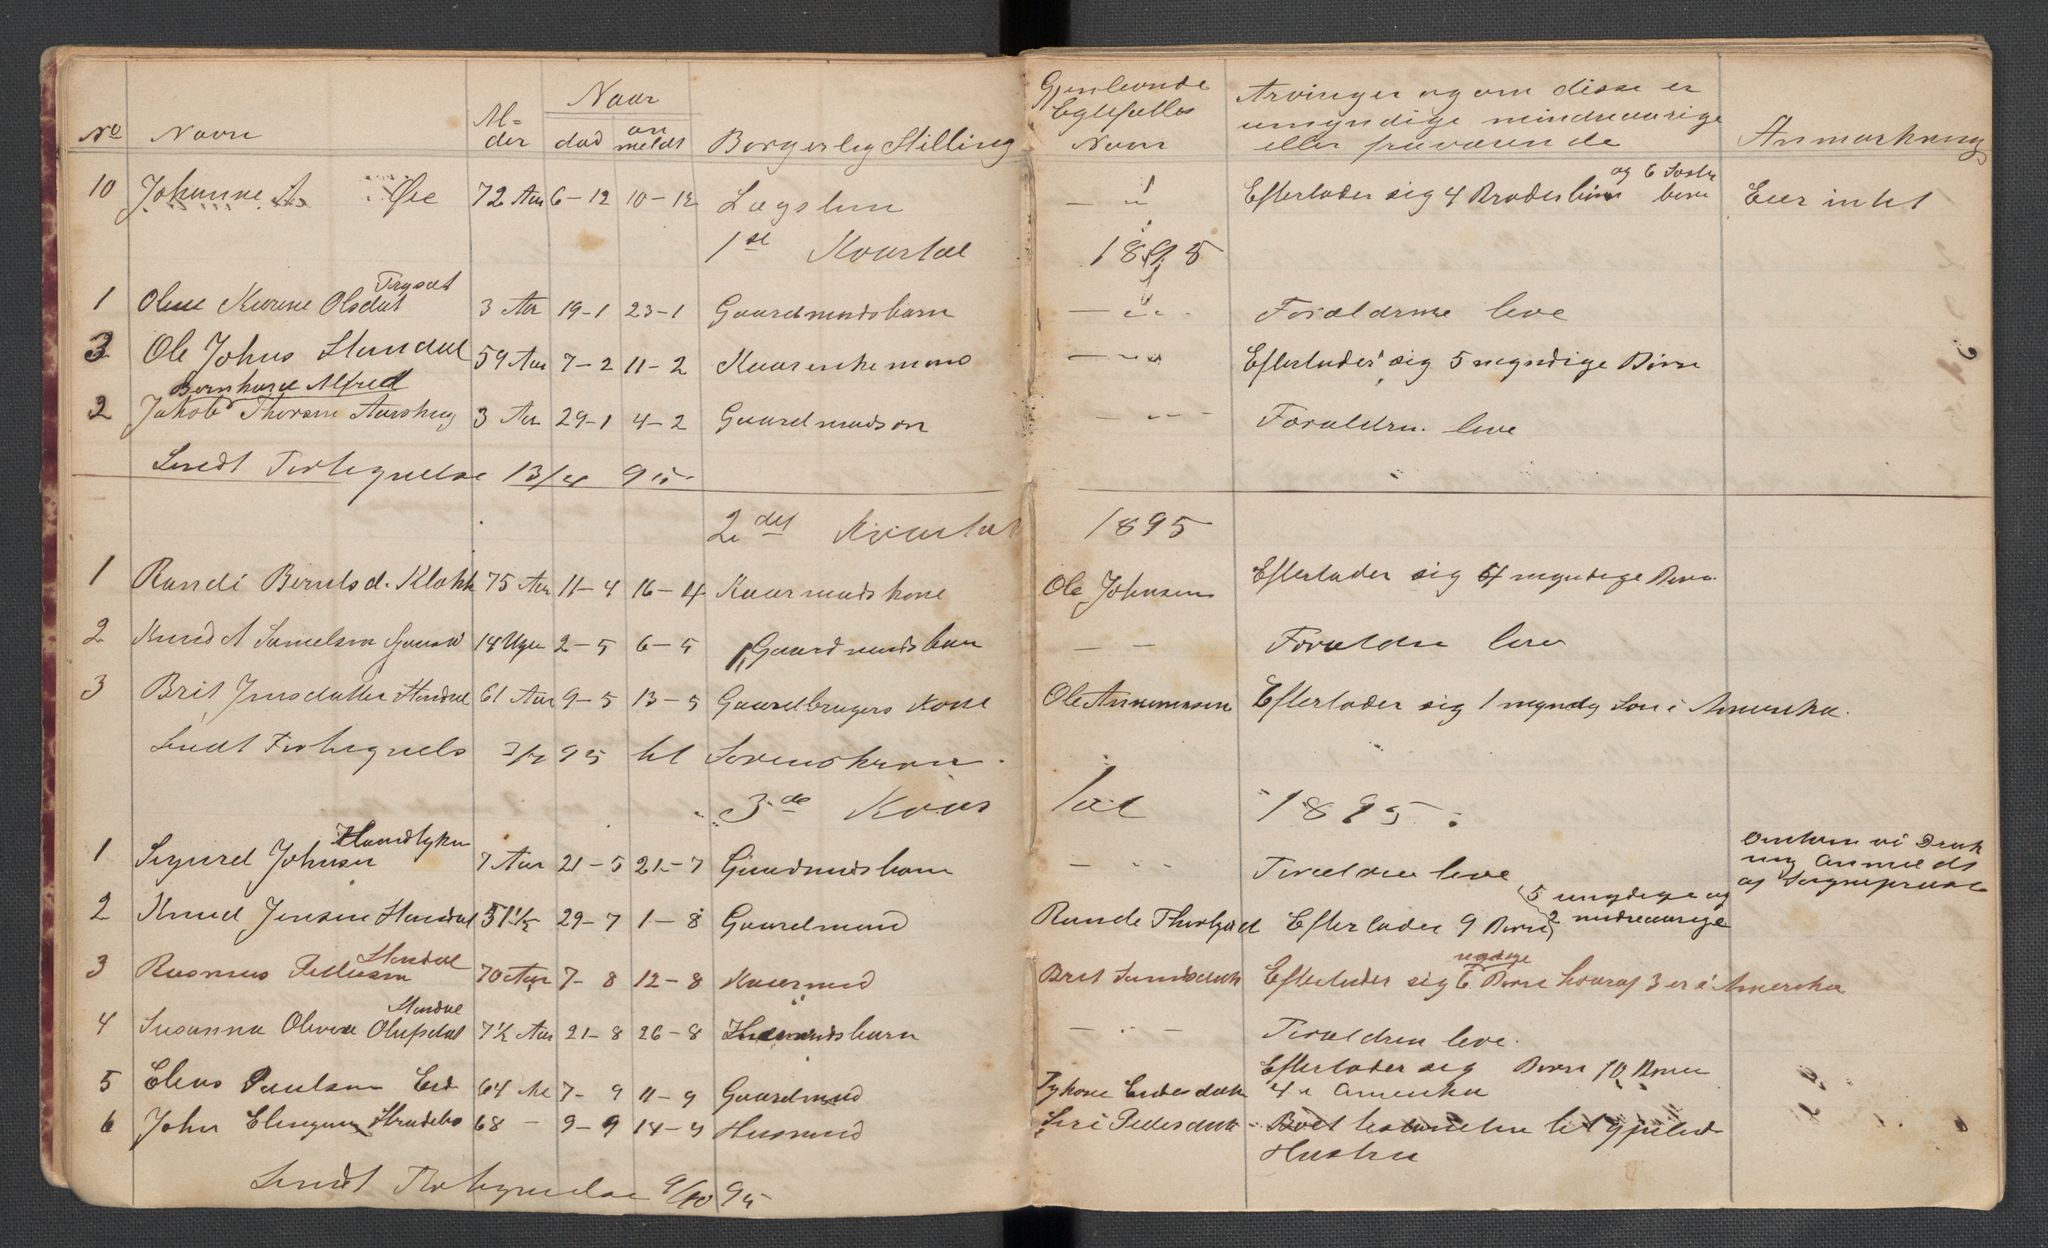 No Navn Al-der Naar død an meldt Borgerlig Stilling Gjenlevende Egtefælles Navn Arvinger og om disse er umyndige mindreaarige eller fraværende Anmærkning
10 Johanne A Øie 72 Aar 6-12 10-12 Lægslem — „ Efterlader sig 4 Broderbørn og 6 Søsterbørn Eier intet
1ste Kvartal 1895
1 Oline Karine Olsdat 3 Aar 19-1 23-1 Gaardmandsbarn — „ Forældrene leve
3 Ole Johns Standal 59 Aar 7-2 11-2 Kaarenkemand — „ Efterlader sig 5 myndige Børn
2 Jakob Bernhard Alfred Thorsen Aarskog 3 Aar 29-1 4-2 Gaardmandsøn — „ — Forældrn leve
Sendt Fortegnelse 13/4 95
2det Kvartal 1895
1 Randi Berntsd. Klokk 75 Aar 11-4 16-4 Kaarmandskone Ole Johnsen Efterlader sig 4 myndige Børn
2 Knud A Samelsen 14 Uger 2-5 6-5 Gaardmandsbarn — — Forældre leve
3 Brit Jensdatter Standal 61 Aar 9-5 13-5 Gaardbrugers Kone Ole Efterlader sig 1 myndig Søn i Amerika.
Sendt Fortegnels 95 til Sorenskriven.
3de Kvartal 1895.
1 Sigurd Johnsen 7 Aar 21-5 21-7 Gaardmandsbarn — „ Forældre leve
2 Knud Jensen Standal 51 1/2 29-7 1-8 Gaardmand Rande Efterlader 9 Børn, 5 umyndige og 2 mindreaarige
3 Rasmus Pettersen Standal 70 Aar 7-8 12-8 Kaarmand Brit Efterlader sig 6 myndige Børn hvoraf 3 er i Amerika
4 Susanna Olivia Olufsdat Standal 7 1/2 Aar 21-8 26-8 — „ — Forældren leve.
5 Elias Paulsen Eid 64 Aar 7-9 11-9 Gaardmand Efterlader sig Børn 10 Børn
4 i Amerika
6 John 68 — 9-9 14-9 Husmand Siri Pedersdatt Boet
Hustru
Sendt Fortegnelse 9/10 95